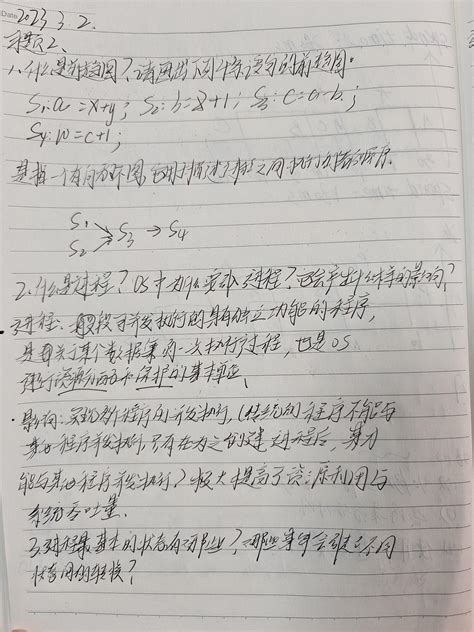 Date 2023.3.2.
习题2.
1.什么是前趋图?请画出下列4条语句的前趋图.
S₁:a=x+y; S₂:b=z+1; S₃:c=a-b;
S₄:w=c+1;
是指一个有向无环图,它用于描述进程之间执行的先后顺序.
S₁
S₂ → S₃ → S₄
2.什么是进程?OS中为什么要引入进程?它会产生什么样的影响?
进程:一段可并发执行的具有独立功能的程序,
是关于某个数据集的一次执行过程,也是OS
进行资源分配和保护的基本单位.
·影响:系统多个程序的并发执行,(传统的)程序不能与
其他程序并发执行,只有在为之创建进程后,才
能与其他程序并发执行)较大提高了资源利用与
系统吞吐量.
3.进程最基本的状态有哪些?哪些事件会引起不同
状态间的转换?